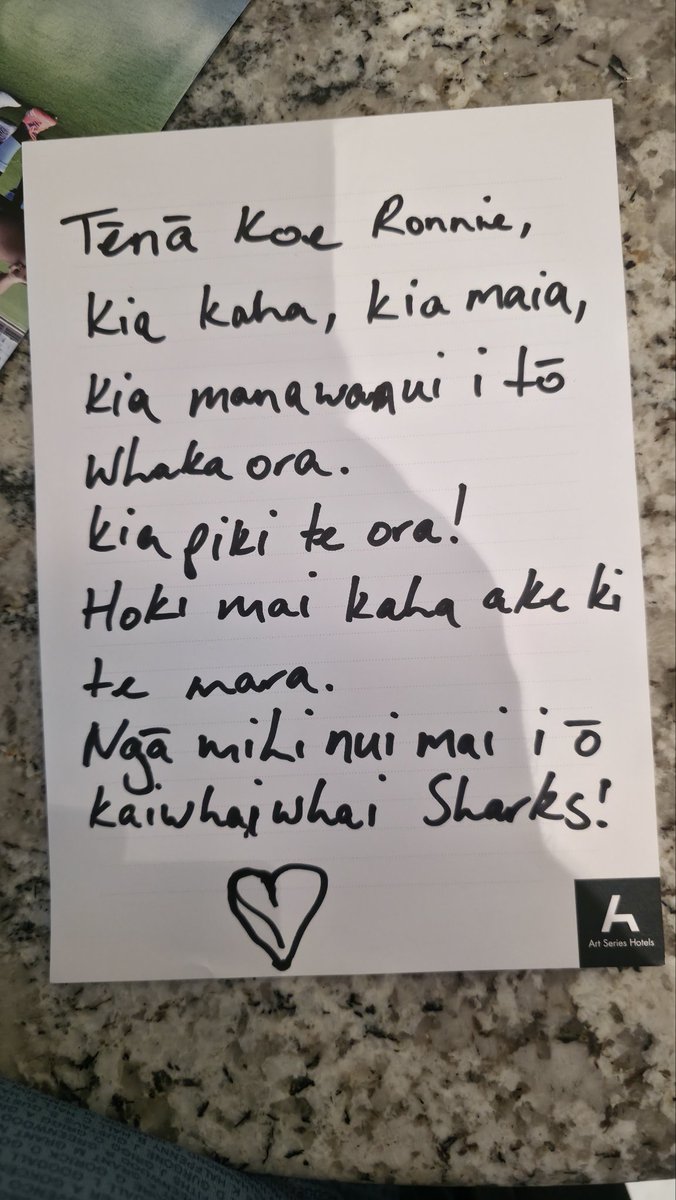 Tēnā koe Ronnie,
kia kaha, kia maia,
kia manawanui i tō
whaka ora.
kia piki te ora!
Hoki mai kaha ake ki
te mara.
Ngā mihi nui mai i ō
kaiwhaiwhai Sharks!
Art Series Hotels